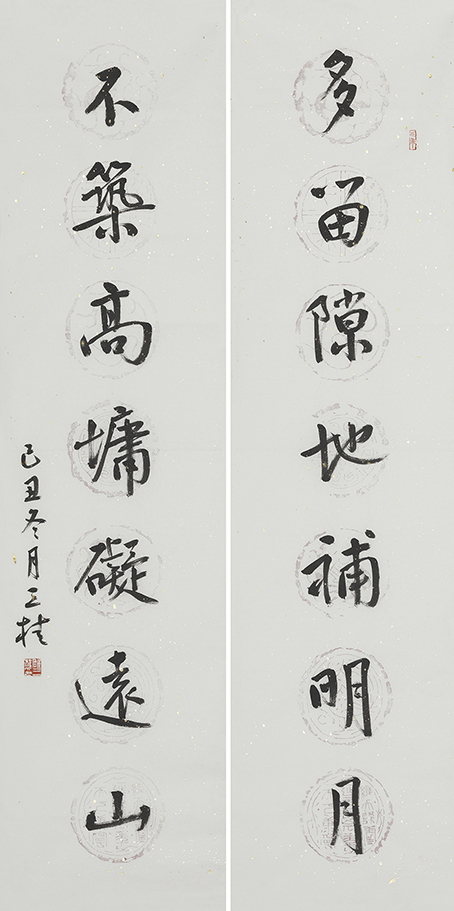 多留隙地補明月
不築高墉礙遠山
己丑冬月三桂